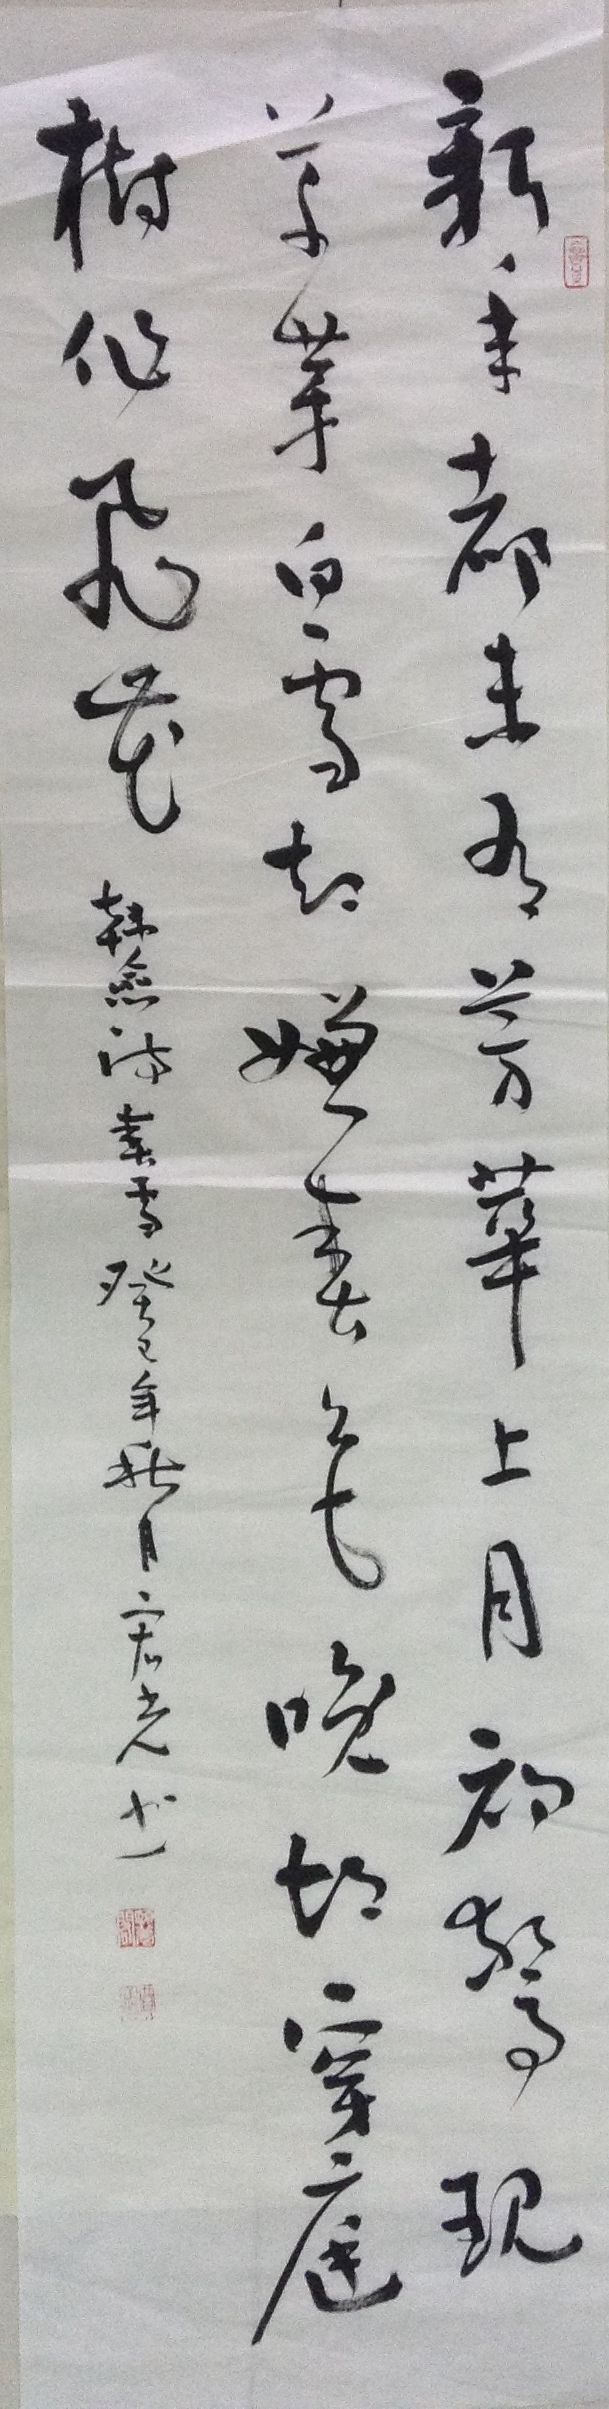 新年都未有芳華上月初驚現
草芽白雪却嫌春色晚故穿庭
樹作飛花
韓愈詩春雪癸巳年秋月宏光书